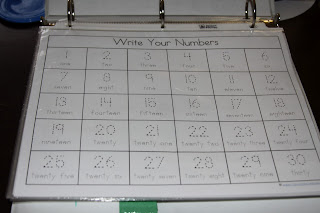 Write Your Numbers
1 2 3 4 5 6
one two three four five six
7 8 9 10 11 12
seven eight nine ten eleven twelve
13 14 15 16 17 18
thirteen fourteen fifteen sixteen seventeen eighteen
19 20 21 22 23 24
nineteen twenty twenty one twenty two twenty three twenty four
25 26 27 28 29 30
twenty five twenty six twenty seven twenty eight twenty nine thirty